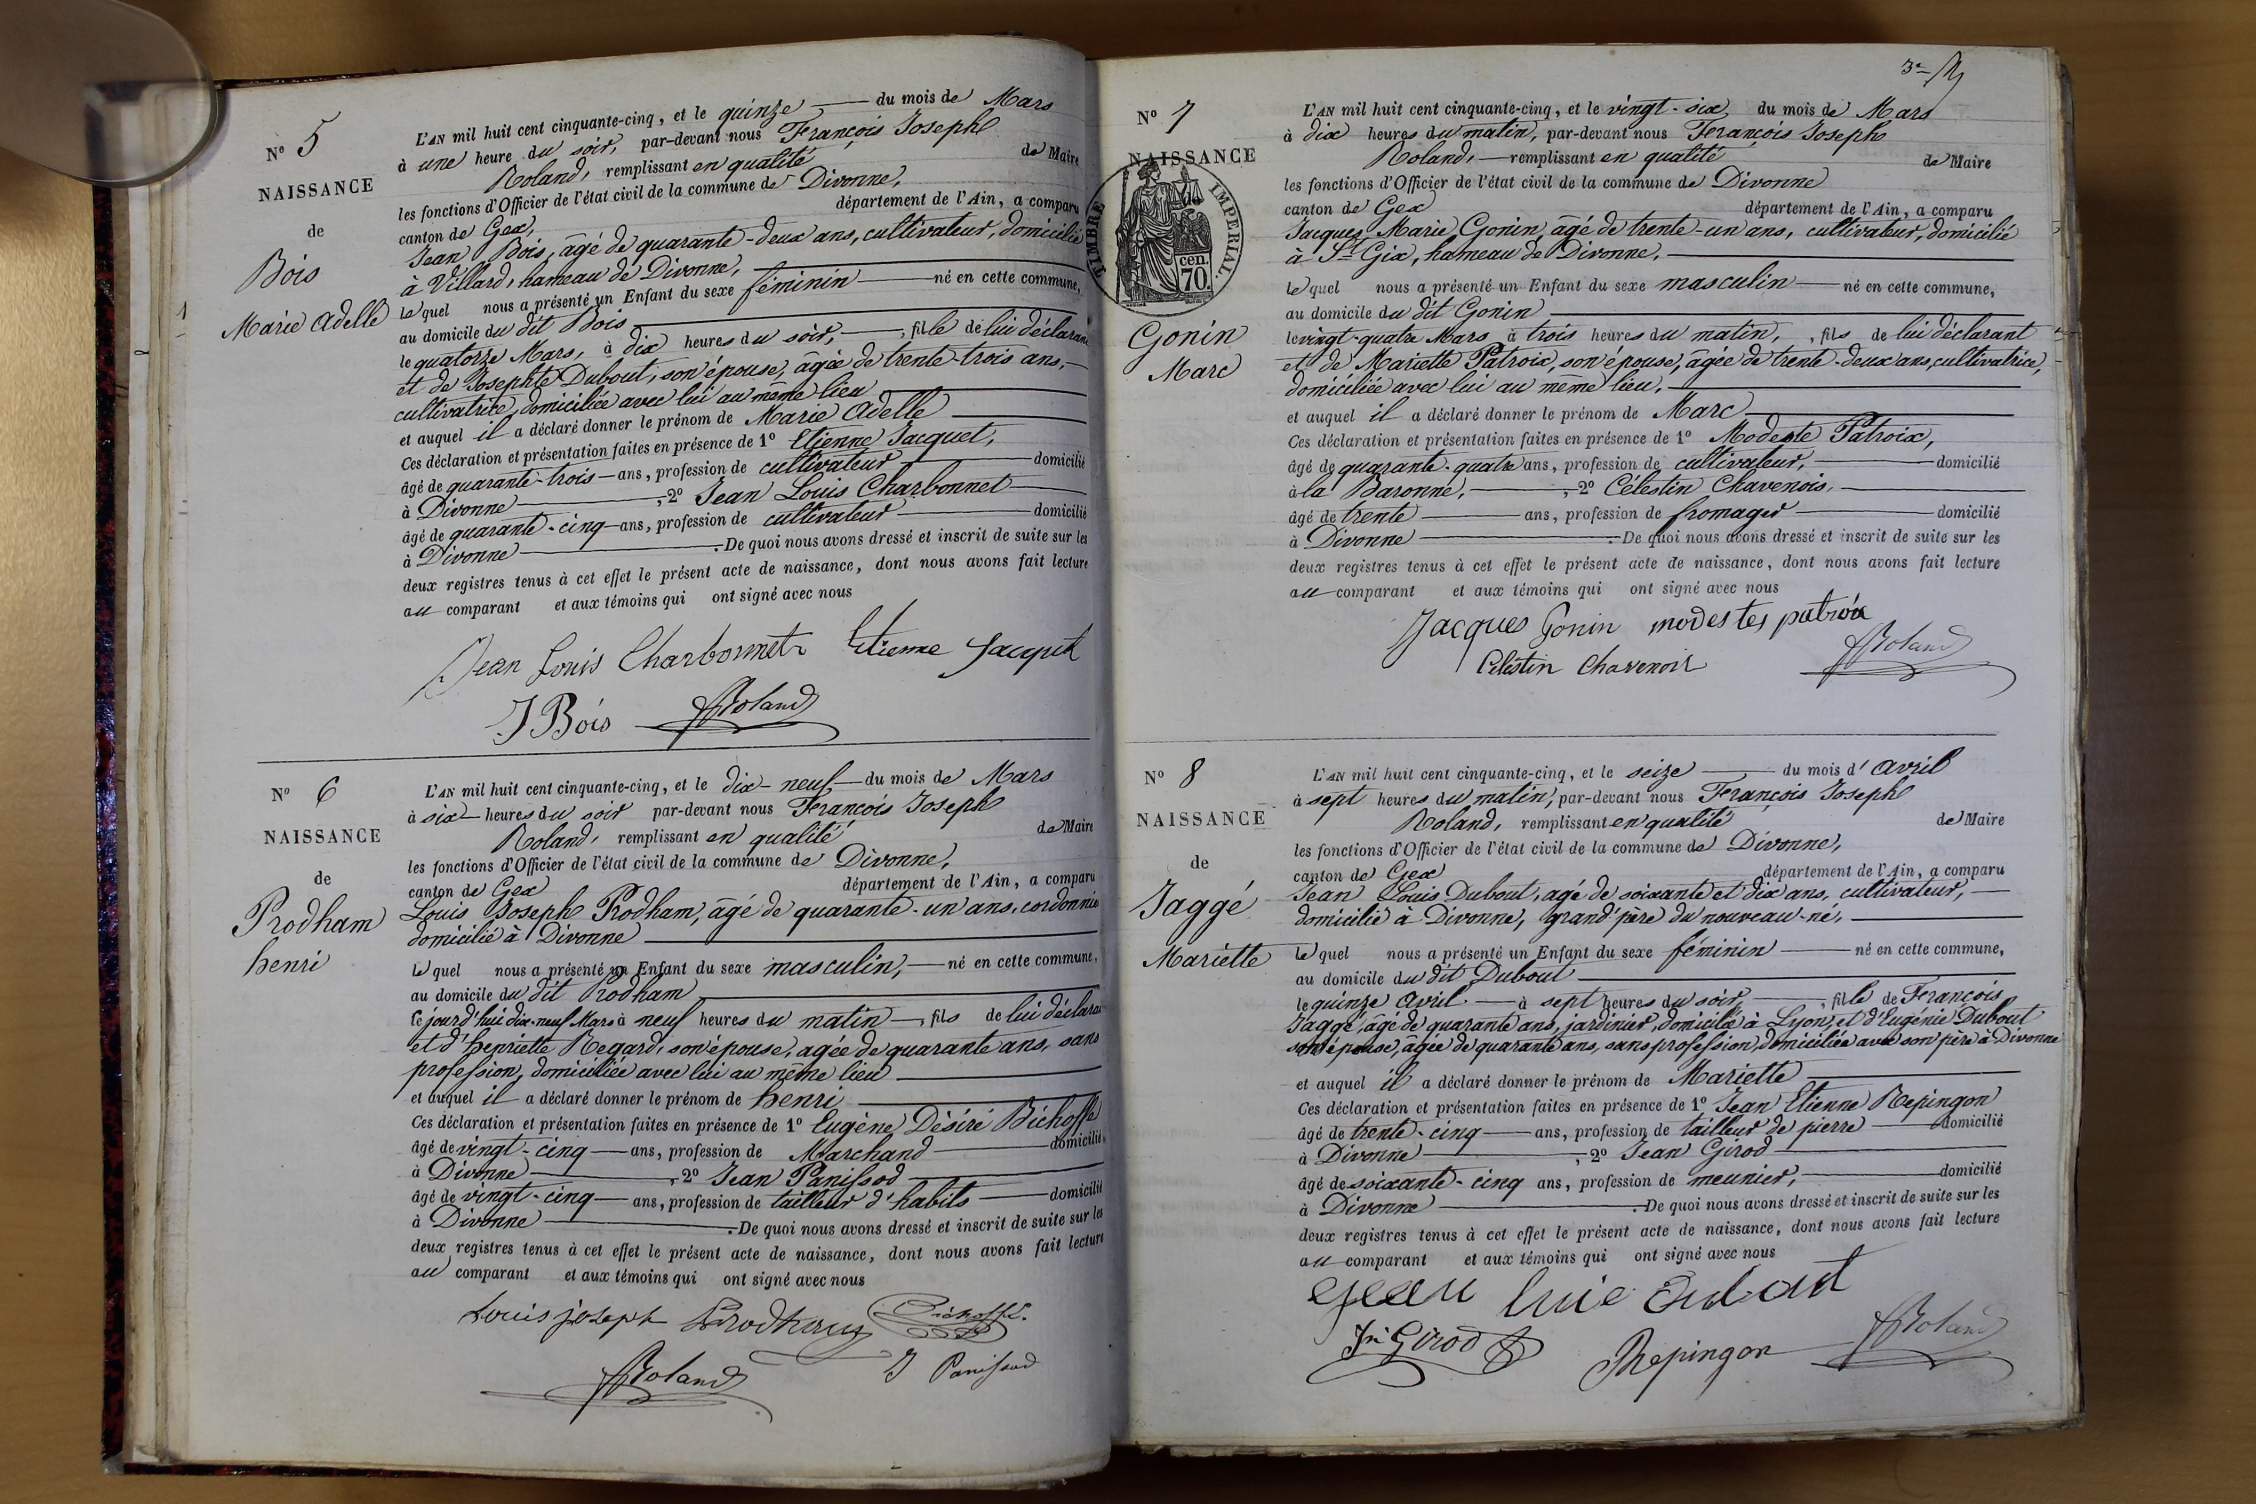 N° 5
NAISSANCE
de
Bois
Marie Adelle
L'AN mil huit cent cinquante-cinq, et le quinze du mois de Mars
à une heure du soir, par-devant nous François Joseph
Roland, remplissant en qualité de Maire
les fonctions d'Officier de l'état civil de la commune de Divonne,
canton de Gex, département de l'Ain, a comparu
Jean Bois, âgé de quarante-deux ans, cultivateur, domicilié
à Villard, hameau de Divonne,
lequel nous a présenté un Enfant du sexe féminin né en cette commune,
au domicile du dit Bois
le quatorze Mars, à dix heures du soir, fille de lui déclarant
et de Josephte Dubout, son épouse, âgée de trente-trois ans,
cultivatrice, domiciliée avec lui au même lieu
et auquel il a déclaré donner le prénom de Marie Adelle
Ces déclaration et présentation faites en présence de 1° Etienne Jacquet,
âgé de quarante-trois ans, profession de cultivateur domicilié
à Divonne, 2° Jean Louis Charbonnet
âgé de quarante-cinq ans, profession de cultivateur domicilié
à Divonne. De quoi nous avons dressé et inscrit de suite sur les
deux registres tenus à cet effet le présent acte de naissance, dont nous avons fait lecture
au comparant et aux témoins qui ont signé avec nous
Jean Louis Charbonnet Etienne Jacquet
J Bois Roland
N° 6
NAISSANCE
de
Prodham
henri
L'AN mil huit cent cinquante-cinq, et le dix-neuf du mois de Mars
à six heures du soir par-devant nous François Joseph
Roland, remplissant en qualité de Maire
les fonctions d'Officier de l'état civil de la commune de Divonne,
canton de Gex département de l'Ain, a comparu
Louis Joseph Prodham, âgé de quarante-un ans, cordonnier
domicilié à Divonne
lequel nous a présenté un Enfant du sexe masculin, né en cette commune,
au domicile du dit Prodham
le jourd'hui dix-neuf Mars à neuf heures du matin, fils de lui déclarant
et d'henriette Regard, son épouse, agée de quarante ans, sans
profession, domiciliée avec lui au même lieu
et auquel il a déclaré donner le prénom de henri
Ces déclaration et présentation faites en présence de 1° Eugène Désiré Bichoffe
âgé de vingt-cinq ans, profession de Marchand domicilié
à Divonne, 2° Jean Panissod
âgé de vingt-cinq ans, profession de tailleur d'habits domicilié
à Divonne. De quoi nous avons dressé et inscrit de suite sur les
deux registres tenus à cet effet le présent acte de naissance, dont nous avons fait lecture
au comparant et aux témoins qui ont signé avec nous
Louis joseph Prodham
Roland J Panissod
3e
N° 7
NAISSANCE
TIMBRE IMPERIAL.
70. cen.
Gonin
Marc
L'AN mil huit cent cinquante-cinq, et le vingt-six du mois de Mars
à dix heures du matin, par-devant nous François Joseph
Roland, remplissant en qualité de Maire
les fonctions d'Officier de l'état civil de la commune de Divonne
canton de Gex département de l'Ain, a comparu
Jacques Marie Gonin, âgé de trente-un ans, cultivateur, domicilié
à St Gix, hameau de Divonne,
lequel nous a présenté un Enfant du sexe masculin né en cette commune,
au domicile du dit Gonin
le vingt-quatre Mars à trois heures du matin, fils de lui déclarant
et de Mariette Patroix, son épouse, âgée de trente-deux ans, cultivatrice,
domiciliée avec lui au même lieu,
et auquel il a déclaré donner le prénom de Marc
Ces déclaration et présentation faites en présence de 1° Modeste Patroix,
âgé de quarante-quatre ans, profession de cultivateur, domicilié
à la Baronne, 2° Célestin Chavenois,
âgé de trente ans, profession de fromager domicilié
à Divonne. De quoi nous avons dressé et inscrit de suite sur les
deux registres tenus à cet effet le présent acte de naissance, dont nous avons fait lecture
au comparant et aux témoins qui ont signé avec nous
Jacques Gonin modestes patroix
Celestin Chavenois Roland
N° 8
NAISSANCE
de
Jaggé
Mariette
L'AN mil huit cent cinquante-cinq, et le seize du mois d'avril
à sept heures du matin, par-devant nous François Joseph
Roland, remplissant en qualité de Maire
les fonctions d'Officier de l'état civil de la commune de Divonne,
canton de Gex département de l'Ain, a comparu
Jean Louis Dubout, agé de soixante et dix ans, cultivateur,
domicilié à Divonne, grand'père du nouveau-né,
lequel nous a présenté un Enfant du sexe féminin né en cette commune,
au domicile du dit Dubout
le quinze avril à sept heures du soir, fille de François
Jaggé, âgé de quarante ans, jardinier, domicilié à Lyon, et d'Eugénie Dubout
son épouse, âgée de quarante ans, sans profession, domiciliée avec son père à Divonne
et auquel il a déclaré donner le prénom de Mariette
Ces déclaration et présentation faites en présence de 1° Jean Etienne Repingon
âgé de trente-cinq ans, profession de tailleur de pierre domicilié
à Divonne, 2° Jean Girod
âgé de soixante-cinq ans, profession de meunier, domicilié
à Divonne. De quoi nous avons dressé et inscrit de suite sur les
deux registres tenus à cet effet le présent acte de naissance, dont nous avons fait lecture
au comparant et aux témoins qui ont signé avec nous
Jean Luie Dubout
Jn Girod Repingon Roland